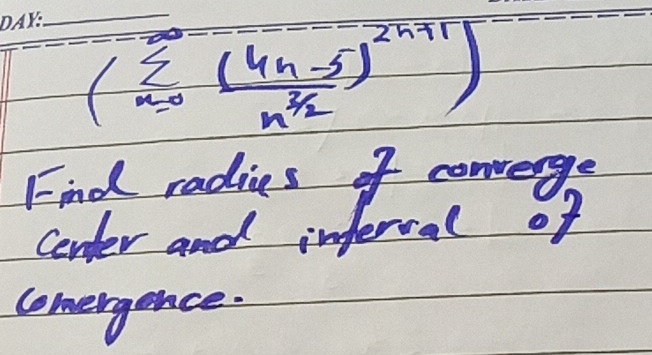 DAY:
( ∞ Σ n=0 (4n-5)^{2n+1} / n^{3/2} )
Find radius of converge
center and interval of
comergence.